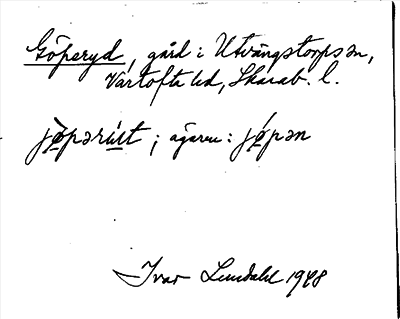 Göperyd, gård i Utvängstorps sn,
Vartofta hd, Skarab. l.
jø̀pərùst ; ägaren: jǿpən
Ivar Lundahl 1948